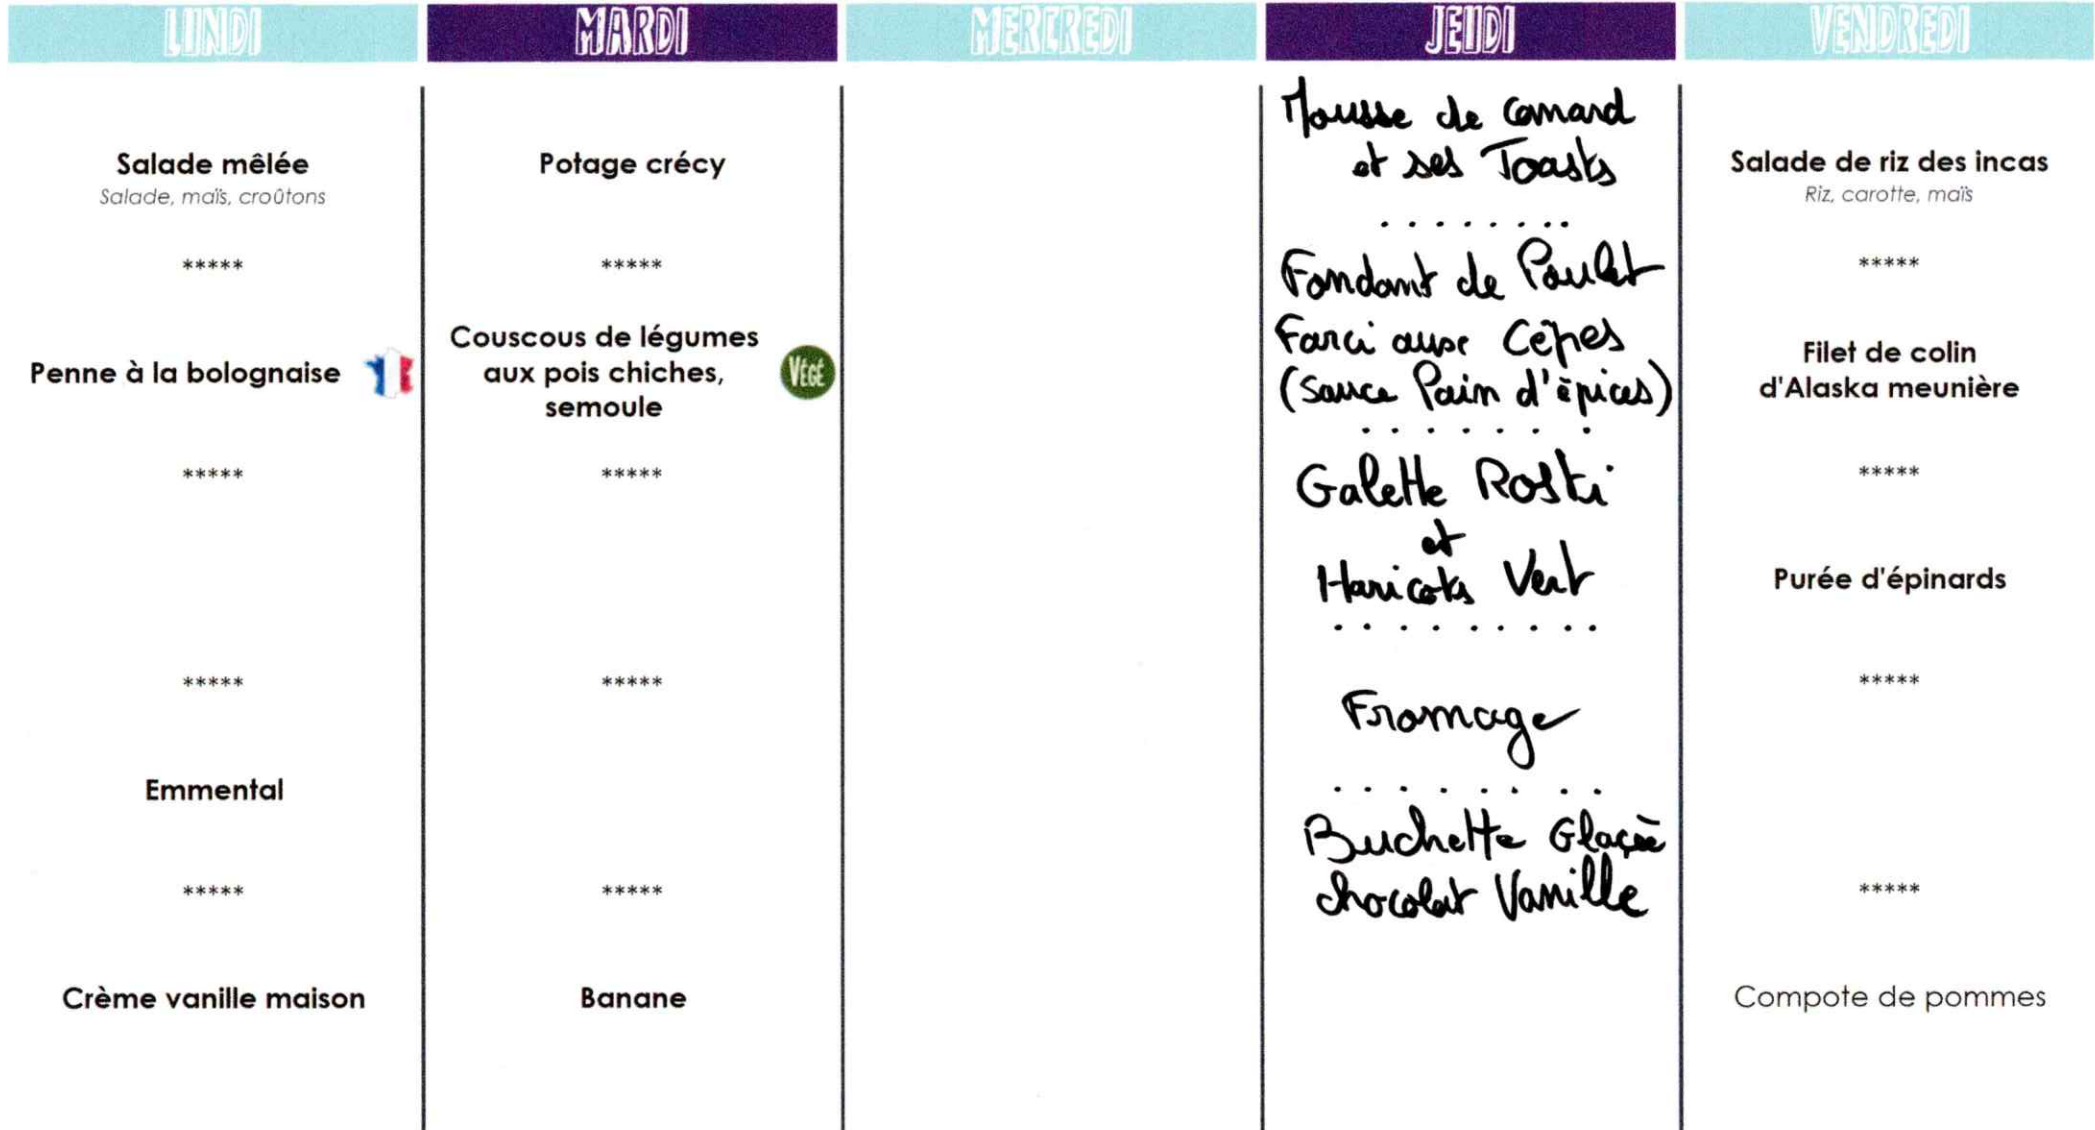 LUNDI
Salade mêlée
Salade, maïs, croûtons
*****
Penne à la bolognaise
*****
*****
Emmental
*****
Crème vanille maison
MARDI
Potage crécy
*****
Couscous de légumes
aux pois chiches,
semoule
VÉGÉ
*****
*****
*****
Banane
MERCREDI
JEUDI
Mousse de canard
et ses Toasts
........
Fondant de Poulet
Farci aux Cèpes
(Sauce Pain d'épices)
.......
Galette Rosti
et
Haricots Vert
.........
Fromage
........
Buchette Glaçée
chocolat Vanille
VENDREDI
Salade de riz des incas
Riz, carotte, maïs
*****
Filet de colin
d'Alaska meunière
*****
Purée d'épinards
*****
*****
Compote de pommes